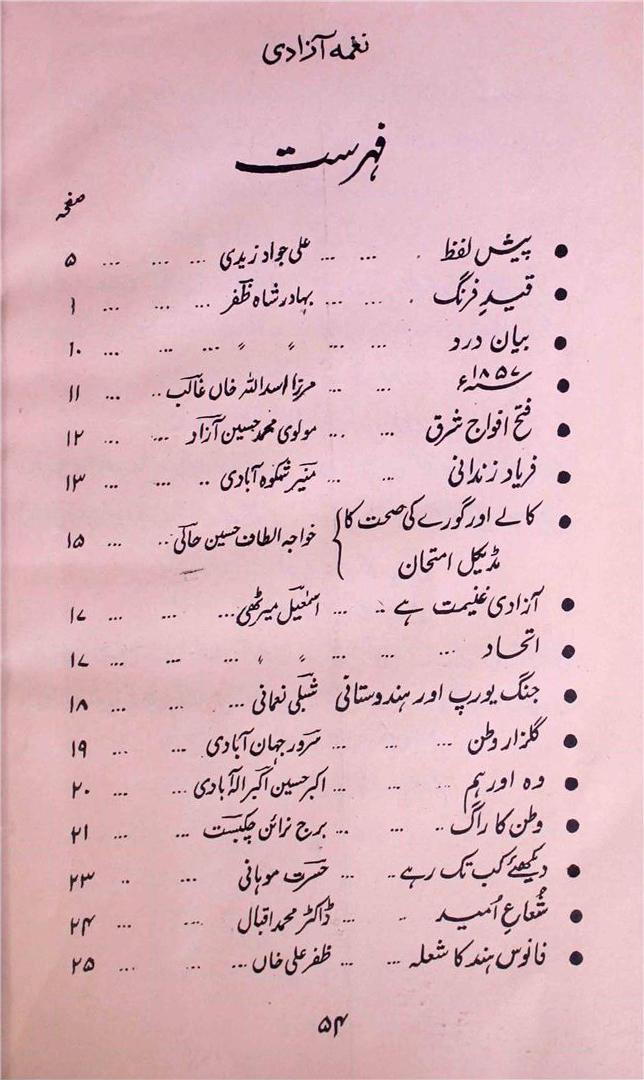 نغمہ آزادی
فہرست
صفحہ
● پیش لفظ . ... ... علی جواد زیدی ... ... ... ۵
● قیدِ فرنگ . ... ... بہادر شاہ ظفر ... ... ...
● بیان درد ... ... 〃 〃 ... ... ... ۱۰
● ۱۸۵۷ء ... ... مرزا اسد اللہ خاں غالب .. ... ... ۱۱
● فتح افواج شرق ... ... مولوی محمد حسین آزاد ... ... ۱۲
● فریاد زندانی ... ... منیر شکوہ آبادی .. ... ... ۱۳
● کالے اور گورے کی صحت کا
مڈیکل امتحان } خواجہ الطاف حسین حالی .. ... ۱۵
● آزادی غنیمت ہے .. ... اسمٰعیل میرٹھی ... ... ... ۱۷
● اتحاد ... ... ... 〃 〃 ... ... ... ۱۷
● جنگ یورپ اور ہندوستانی شبلی نعمانی ... ... ... ۱۸
● گلزار وطن ... ... ... سرور جہان آبادی ... ... ۱۹
● وہ اور ہم ... ... ... اکبر حسین اکبر الہٰ آبادی ... ... ۲۰
● وطن کا راگ .. ... ... برج نرائن چکبست ... ... ۲۱
● دیکھئے کب تک رہے .. ... حسرت موہانی ... .. ۲۳
● شُعاعِ اُمید .. ... ڈاکٹر محمد اقبال ... ... ۲۴
● فانوس ہند کا شعلہ ... ... ظفر علی خاں ... ... ... ۲۵
۵۴